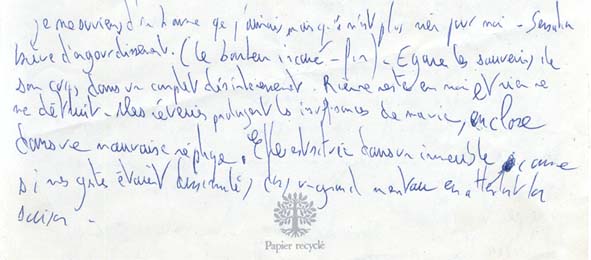 je me souviens d'un homme que j'aimais mais qui n'est plus rien pour moi - Sensation
brève d'engourdissement. (le bonheur incarné - fin) - Egare les souvenirs de
son corps dans un complet désintéressement. Rien ne reste en moi et rien ne
me détruit - Mes rêveries prolongent les insuffisances de ma vie, enclose
dans une mauvaise réplique. Elle est située dans un immeuble, comme
si mes gestes étaient dissimulés dans un grand manteau en attendant la
saison -
Papier recyclé